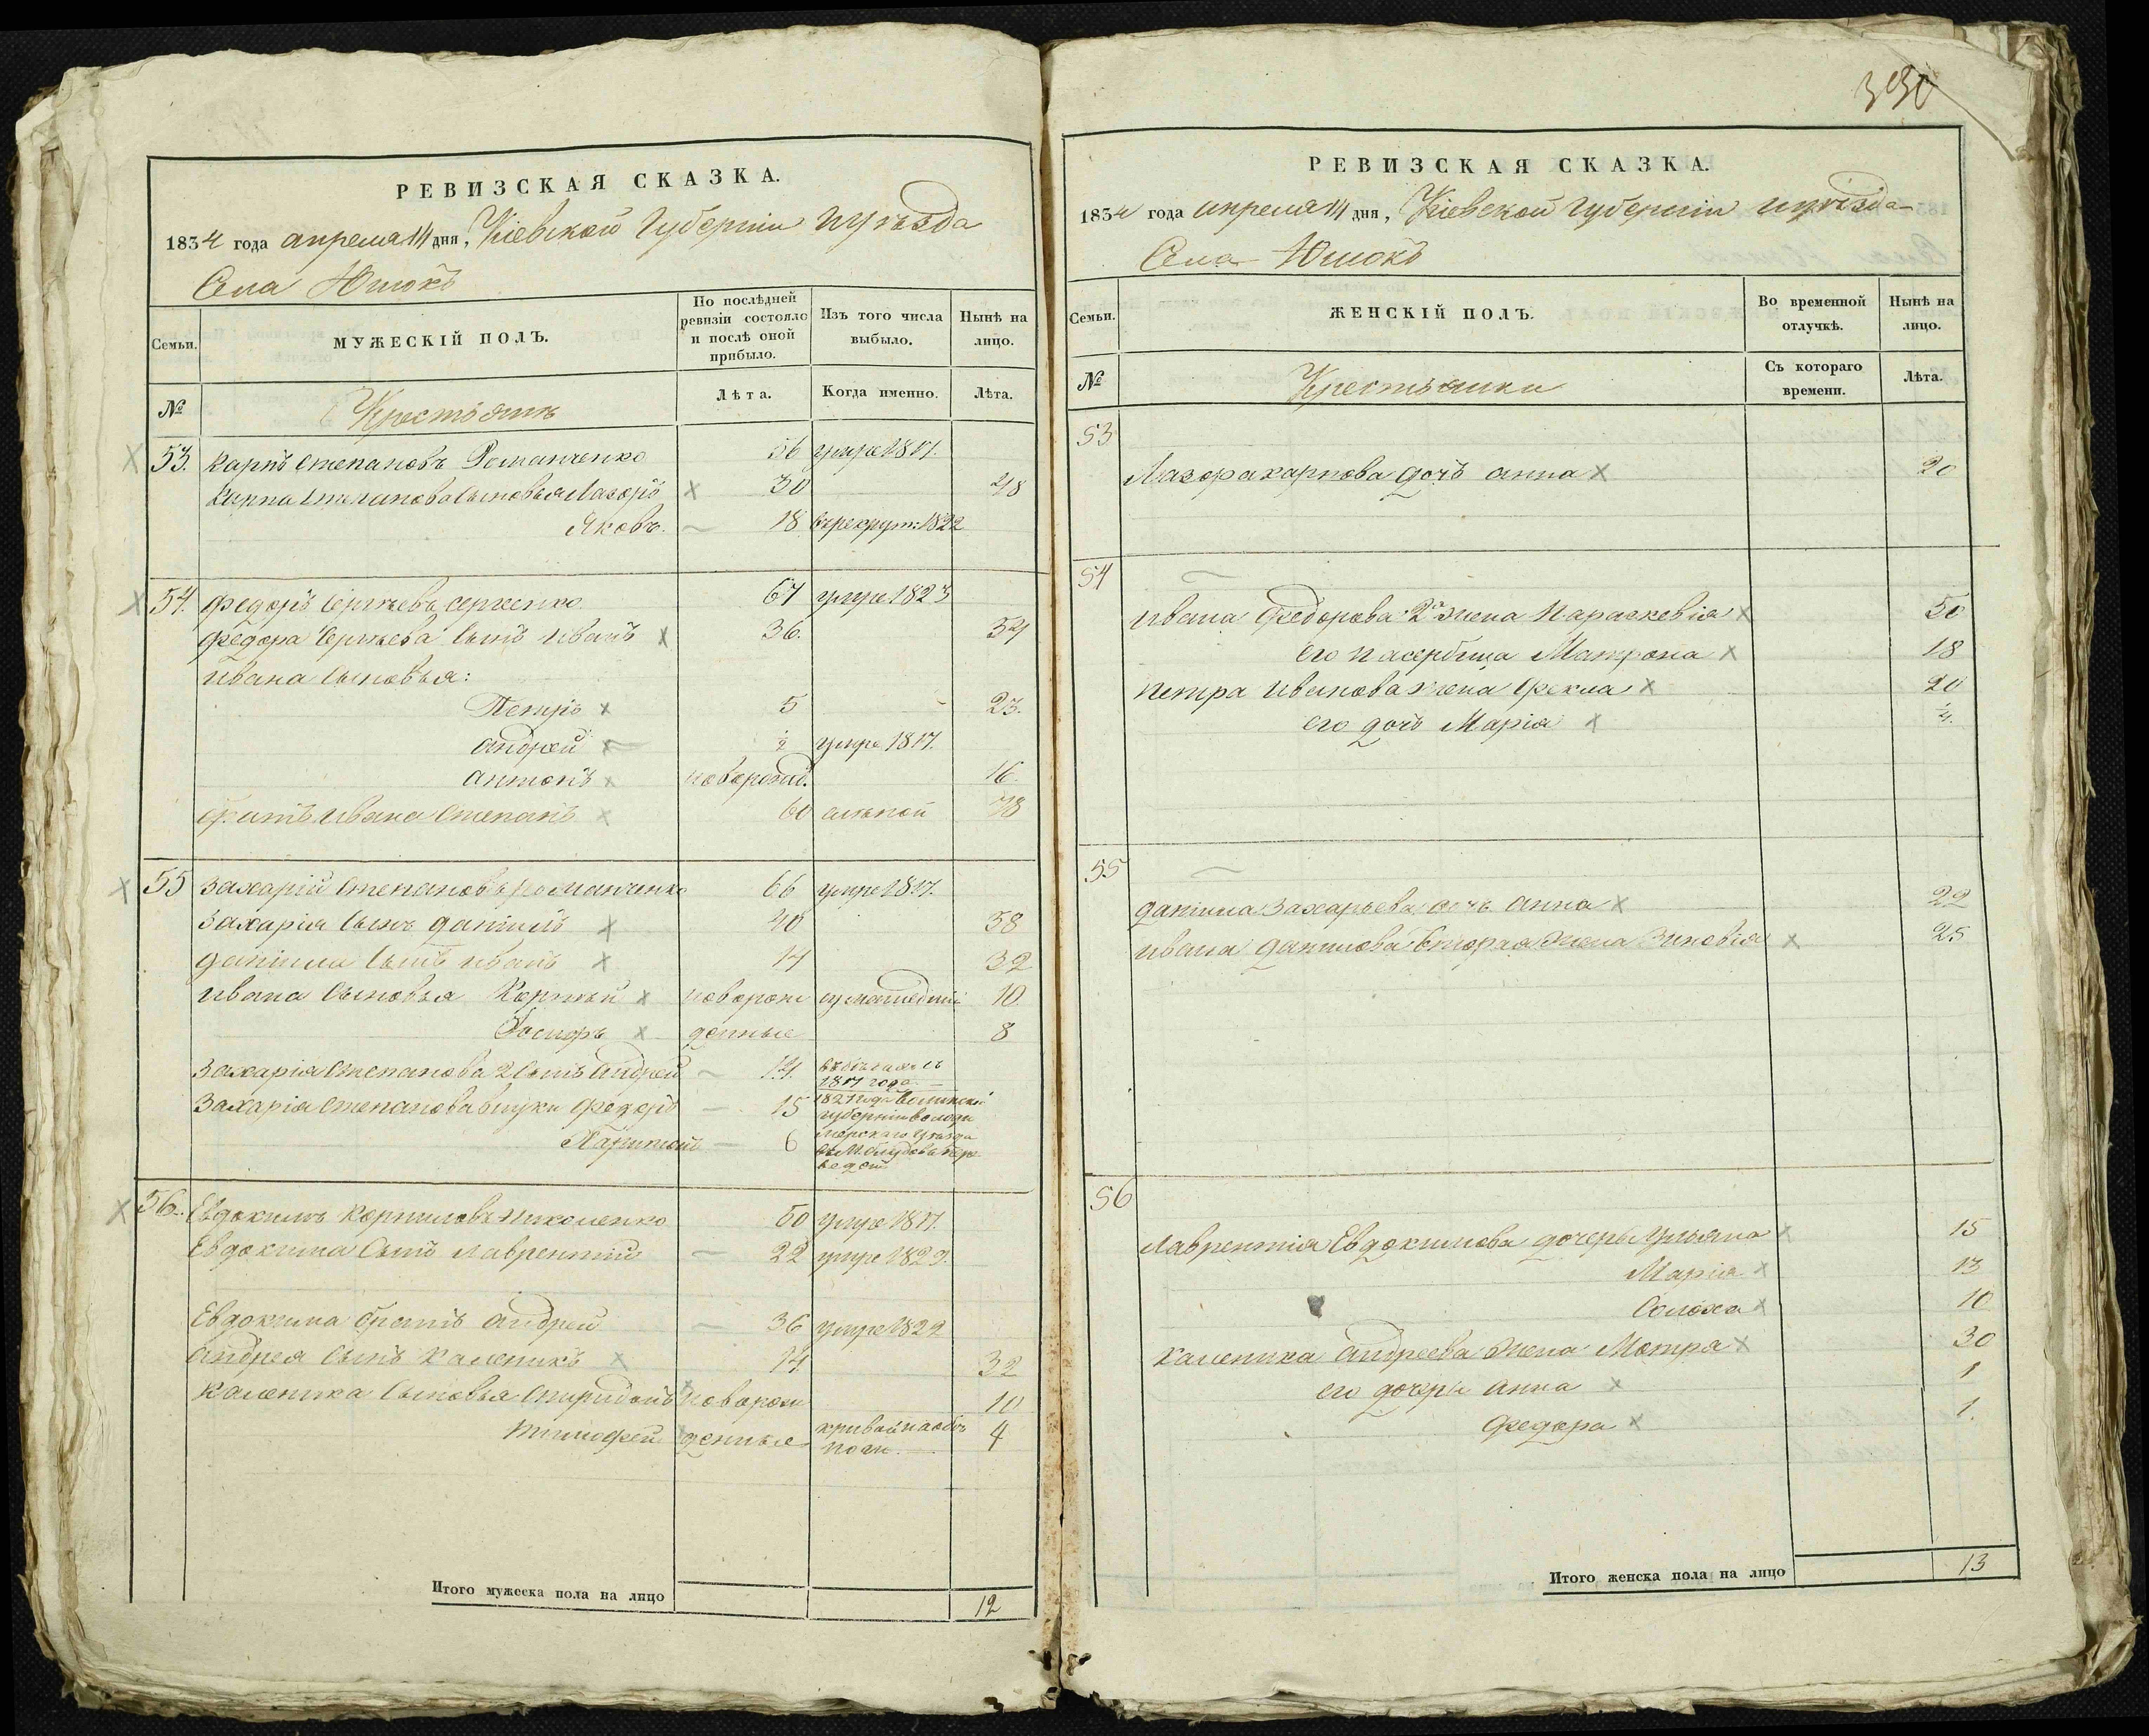 РЕВИЗСКАЯ СКАЗКА.
1834 года апреля 14 дня, Кіевской Губерніи и уѣзда
Села Юшокъ
Семьи.
МУЖЕСКІЙ ПОЛЪ.
По послѣдней ревизіи состояло и послѣ оной прибыло.
Изъ того числа выбыло.
Нынѣ на лицо.
№
Крестьяни
Лѣта.
Когда именно.
Лѣта.
53. Карпъ Степановъ Романченко 56 умре 1817.
Карпа Степанова Сыновья Лазоръ 30 48
Яковъ. 18 въ рекрут: 1822
54. Федоръ Сергѣевъ Сергеенко 67 умре 1823
Федора Сергѣева Сынъ Иванъ 36. 54
Ивана Сыновья:
Петръ 5 23.
Андрей ½ умре 1817.
Антонъ новорожд. 16.
братъ Ивана Степанъ 60 слѣпой 78
55 Захарій Степановъ Романченко 66 умре 1817.
Захарія Сынъ Даніилъ 40 58
Даніила Сынъ Иванъ 14 32
Ивана Сыновья Корнѣй новорож сумашедшій 10
Іосифъ денные 8
Захарія Степанова 2 Сынъ Андрей 14. въ бѣгахъ съ
1817 года.
Захарія Степанова внуки Федоръ 15 1821 года Волинской
губерніи Володи
Харитонъ 6 мерскаго уѣзда
въ М. пере
веден
56. Евдокимъ Корниловъ Николенко 50 умре 1817.
Евдокима Сынъ Лаврентій 22 умре 1829.
Евдокима братъ Андрей 36 умре 1822
Андрея Сынъ Каленикъ 14 32
Каленика Сыновья Спиридонъ новорож 10
Тимофей денные кривый на обѣ
ноги. 4
Итого мужеска пола на лицо 12
330
РЕВИЗСКАЯ СКАЗКА.
1834 года апреля 14 дня, Кіевской Губерніи и уѣзда
Села Юшокъ
Семьи.
ЖЕНСКІЙ ПОЛЪ.
Во временной отлучкѣ.
Нынѣ на лицо.
№
Крестьянки
Съ котораго времени.
Лѣта.
53
Лазора Карпова дочь Анна 20
54
Ивана Федорова 2я жена Параскевія 50
его пасербица Матрона 18
Петра Иванова жена Фекла 20
его дочь Марія ¼.
55
Даніила Захарьева дочь Анна 22
Ивана Данилова вторая жена Зиновія 25
56
Лаврентія Евдокимова дочеры Ульяна 15
Марія 13
Солоха 10
Каленика Андреева жена Мотря 30
его дочеры Анна 1
Федора 1.
Итого женска пола на лицо 13